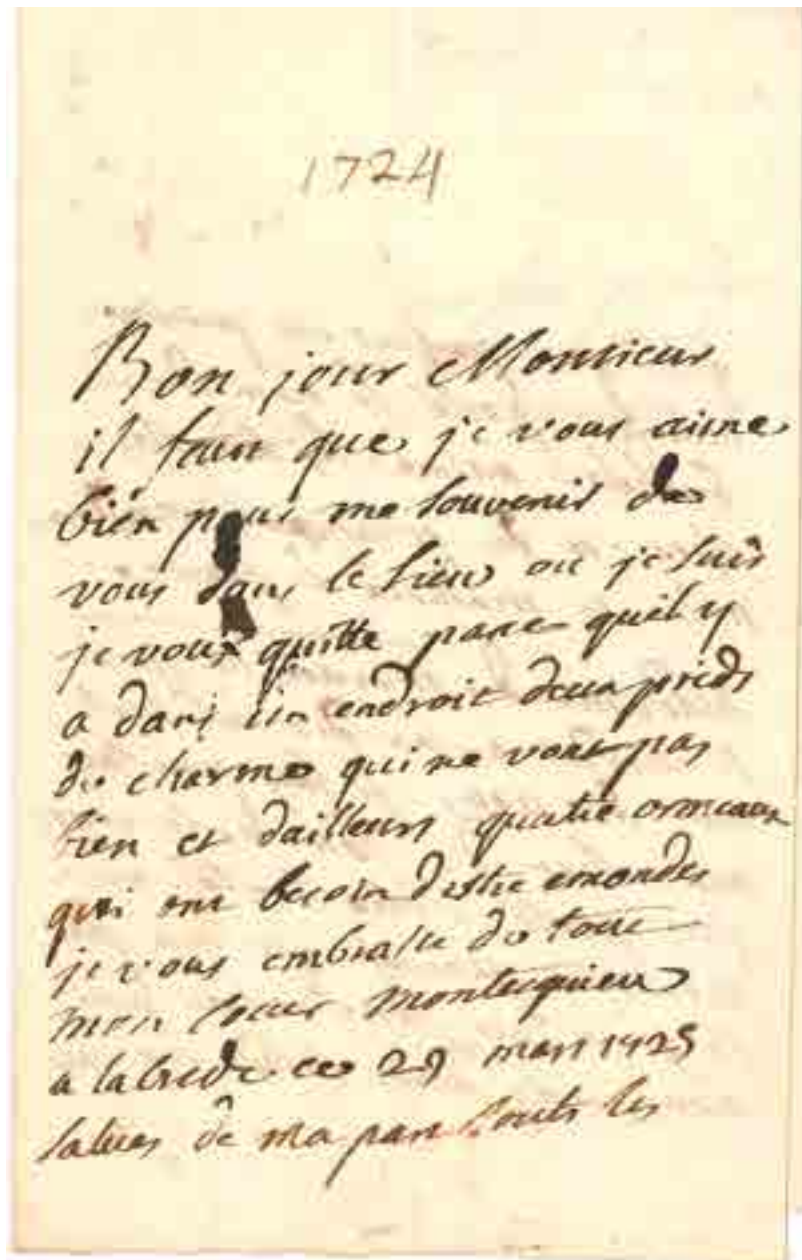 1724
Bon jour Monsieur
il faut que je vous aime
bien pour me souvenir de
vous dans le lieu ou je suis
je vous quitte parce quil y
a dans un endroit deux pieds
de charme qui ne vont pas
bien et dailleurs quatre ormeaux
qui ont besoin destre emondes
je vous embrasse de tout
mon coeur montesquieu
a labrede ce 29 mars 1725
salues de ma part touts les